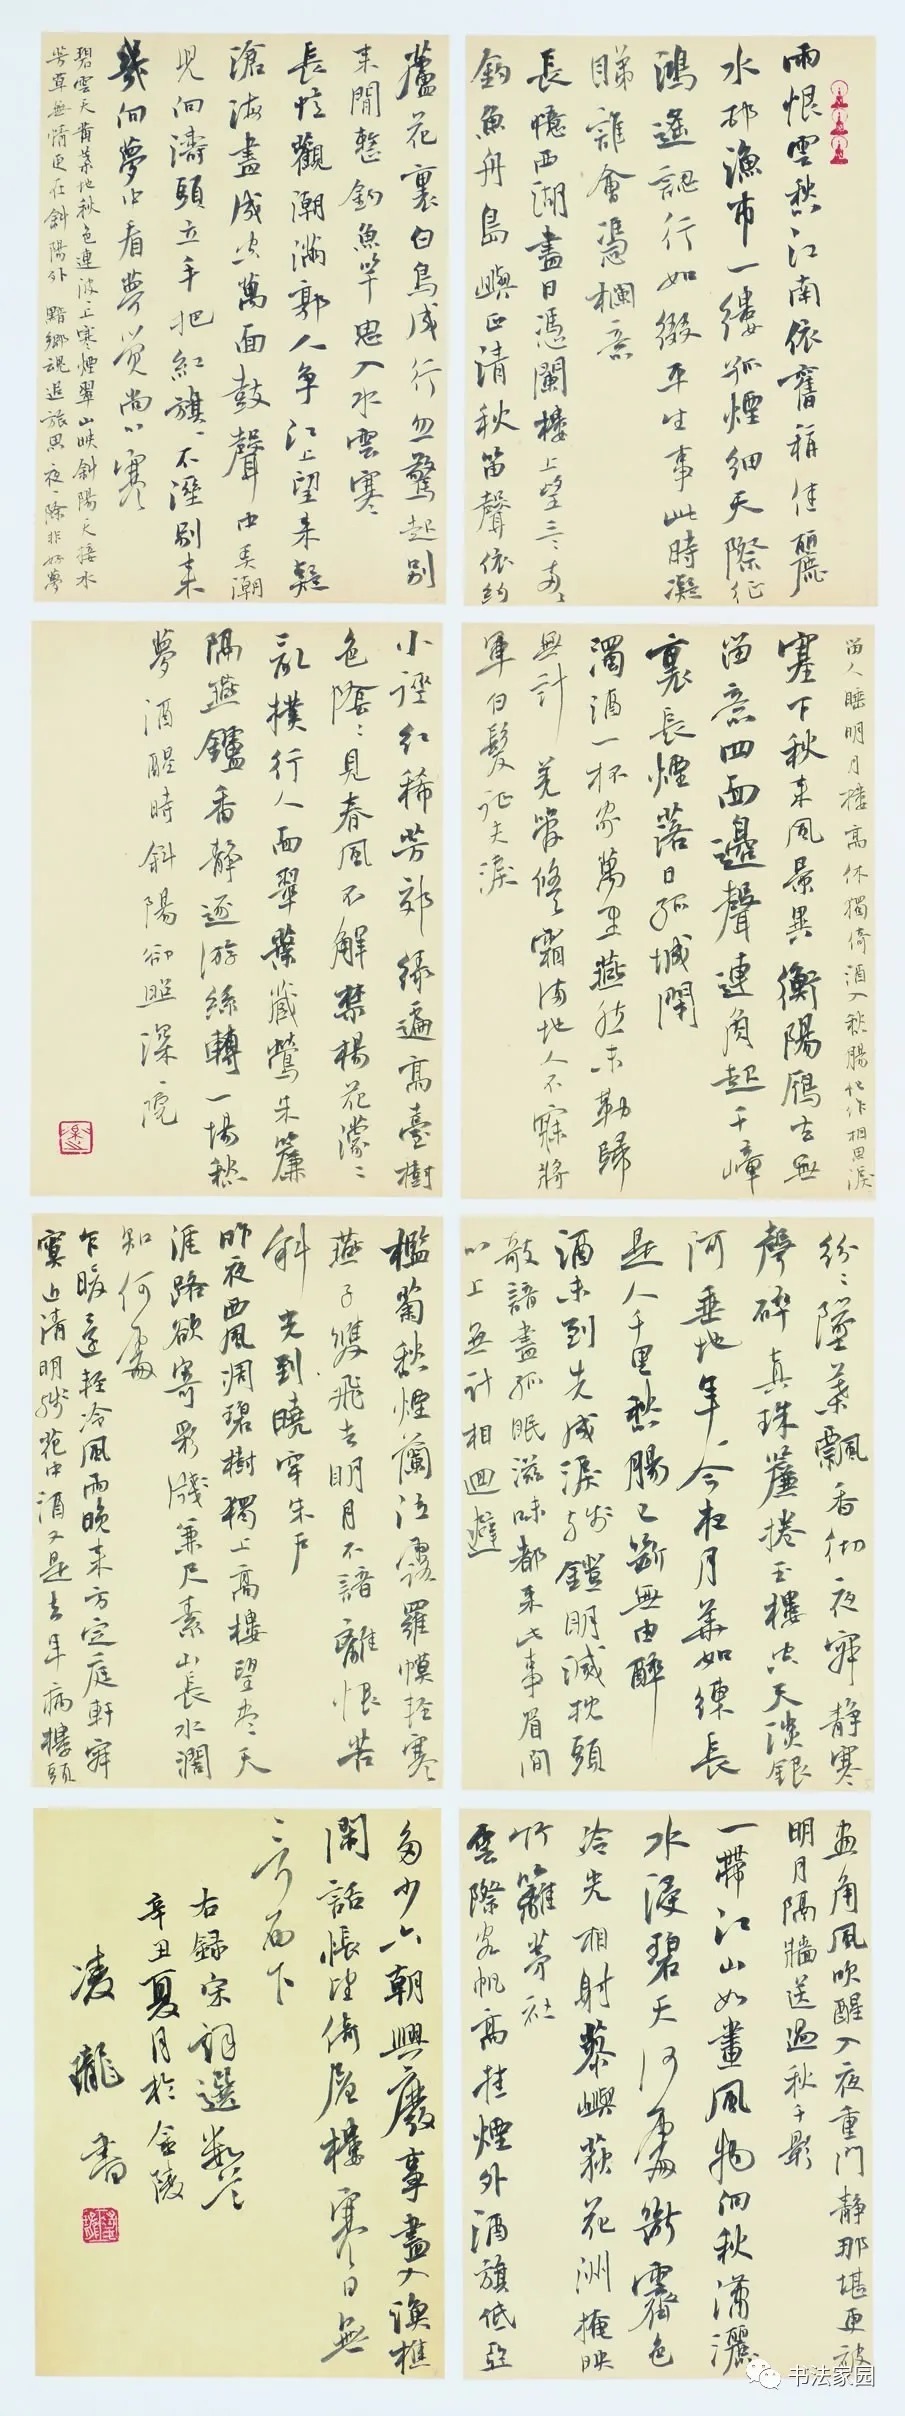 雨恨雲愁江南依舊稱佳麗
水邨漁市一縷孤煙細天際征
鴻遙認行如綴平生事此時凝
睇誰會憑欄意
長憶西湖盡日憑闌樓上望三三兩兩
釣魚舟島嶼正清秋笛聲依約
蘆花裏白鳥成行忽驚起別
來閒整釣魚竿思入水雲寒
長憶觀潮滿郭人爭江上望來疑
滄海盡成空萬面鼓聲中弄潮
兒向濤頭立手把紅旗旗不濕別來
幾向夢中看夢覺尚心寒
碧雲天黃葉地秋色連波波上寒煙翠山映斜陽天接水
芳草無情更在斜陽外 黯鄉魂追旅思夜夜除非好夢
留人睡明月樓高休獨倚酒入秋腸化作相思淚
塞下秋來風景異衡陽雁去無
留意四面邊聲連角起千嶂
裏長煙落日孤城閉
濁酒一杯家萬里燕然未勒歸
無計 羌管悠悠霜滿地人不寐將
軍白髮征夫淚
小徑紅稀芳郊綠遍高臺樹
色陰陰見春風不解禁楊花濛濛
亂撲行人面翠葉藏鶯朱簾
隔燕鑪香靜逐游絲轉一場愁
夢酒醒時斜陽卻照深深院
紛紛墜葉飄香砌夜寂靜寒
聲碎真珠簾捲玉樓空天淡銀
河垂地年年今夜月華如練長
是人千里愁腸已斷無由醉
酒未到先成淚殘鐙明滅枕頭
敧諳盡孤眠滋味都來此事眉間
心上無計相迴避
檻菊愁煙蘭泣露羅幙輕寒
燕子雙飛去明月不諳離恨苦
斜光到曉穿朱戶
昨夜西風凋碧樹獨上高樓望盡天
涯路欲寄彩牋兼尺素山長水濶
知何處
乍暖還輕冷風雨晚來方定庭軒寂
寞近清明殘花中酒又是去年病樓頭
畫角風吹醒入夜重門靜那堪更被
明月隔牆送過秋千影
一帶江山如畫風物向秋瀟灑
水浸碧天何處斷霽色
冷光相射蓼嶼荻花洲掩映
竹籬茅社
雲際客帆高挂煙外酒旗低亞
多少六朝興廢事盡入漁樵
閑話悵望倚層樓寒日無
言西下
右錄宋詞選數首
辛丑夏月於金陵
凌瓏書
书法家园